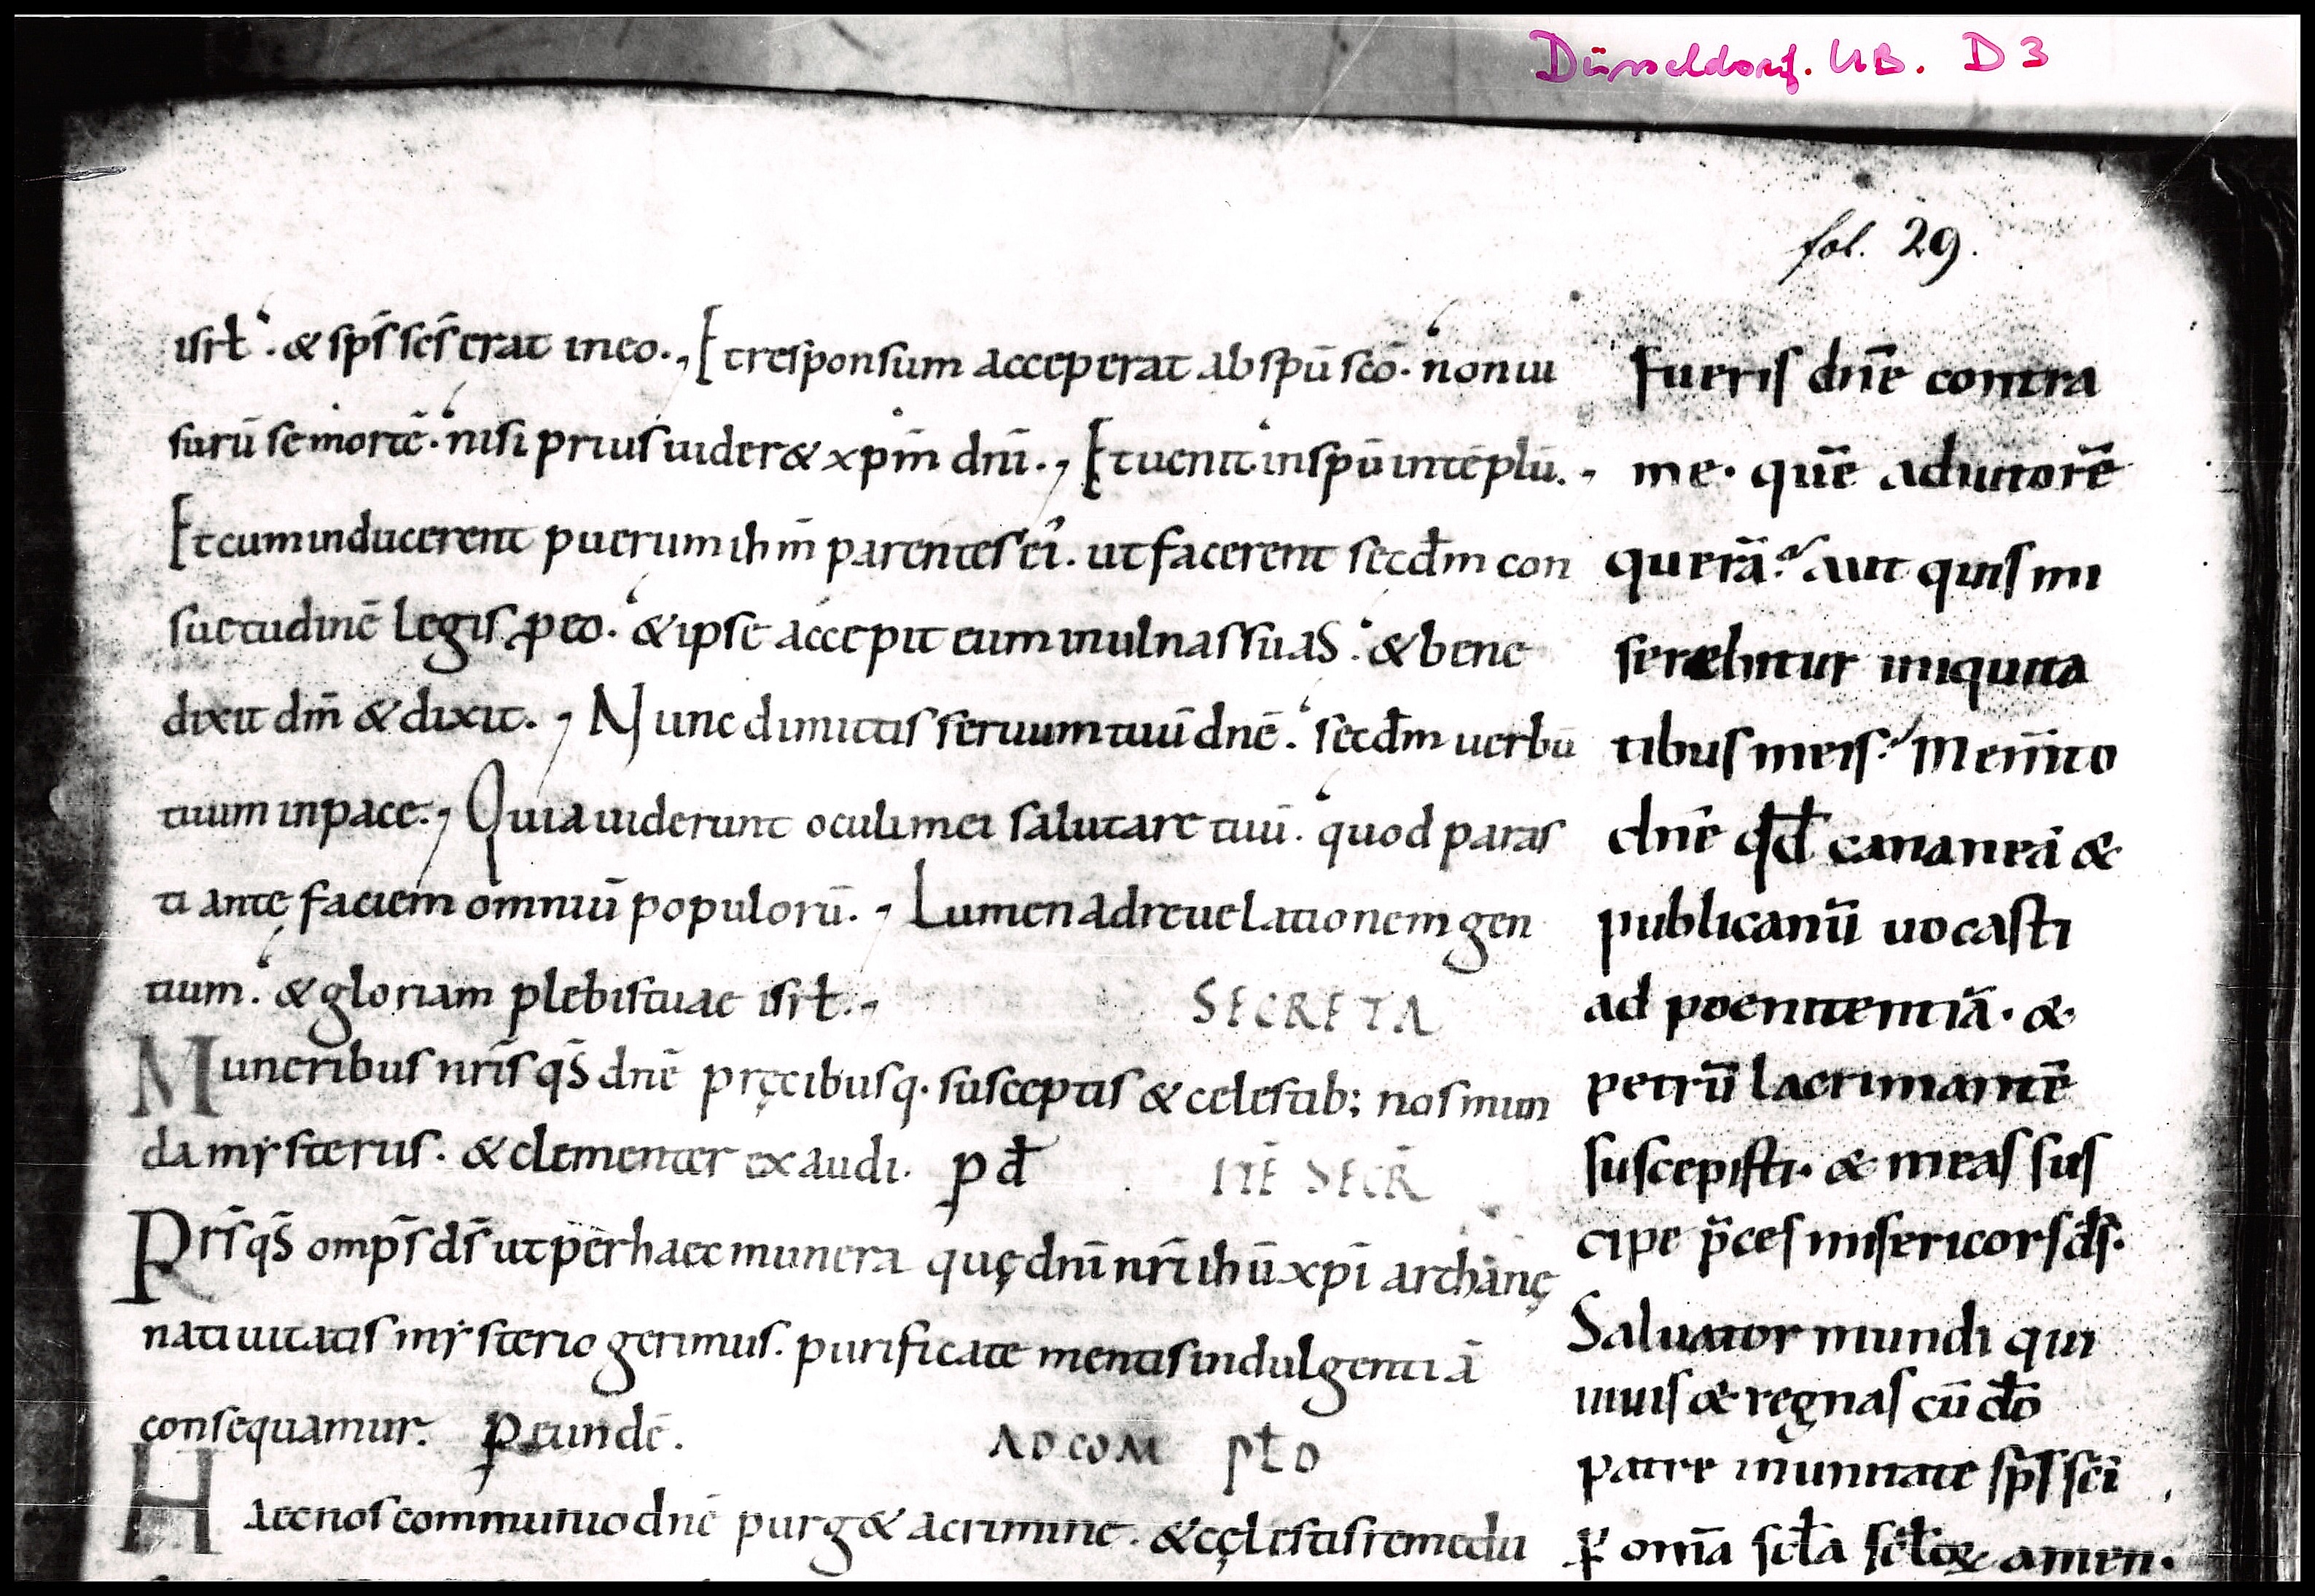 Düsseldorf. UB. D 3
fol. 29.
isrł. & sp̄s sc̄s erat in eo. Et responsum acceperat ab spū scō. non ui
surū se mortē. nisi prius uider& xpm̄ dnī. Et uenit in spū in tēplū.
Et cum inducerent puerum ihm̄ parentes ei. ut facerent secdm̄ con
suetudinē legis ꝓ eo. & ipse accepit eum in ulnas suas. & bene
dixit dm̄ & dixit. Nunc dimittis seruum tuū dnē. secdm̄ uerbū
tuum in pace. Quia uiderunt oculi mei salutare tuū. quod paras
ti ante faciem omniū populorū. Lumen ad reuelationem gen
tium. & gloriam plebis tuae isrł.
SECRETA
Muneribus nrīs qs̄ dnē pręcibusq. susceptis & celestib; nos mun
da mysteriis. & clementer exaudi. p đ
ITĒ SECR̄
Prs̄ qs̄ omps̄ ds̄ ut per haec munera quę dnī nrī ihū xpī archanę
natiuitatis mysterio gerimus. purificate mentis indulgentiā
consequamur. ꝑ eundē.
AD COM pło
Haec nos communio dnē purg& a crimine. & cęlestis remedii
fueris dnē contra
me. quē adiutorē
querā? Aut quis mi
serebitur iniquita
tibus meis? Mem̄to
dnē qđ cananeā &
publicanū uocasti
ad poenitentiā. &
petrū lacrimantē
suscepisti. & meas sus
cipe p̄ces misericors ds̄.
Saluator mundi qui
uiuis & regnas cū dō
patre in unitate sp̄s sc̄i
ꝑ om̄a scła scłoꝝ amen.